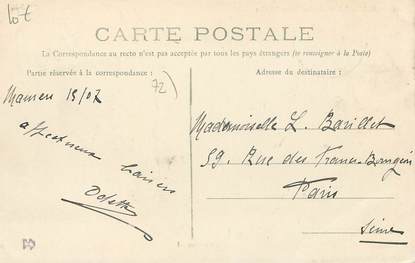 10€
CARTE POSTALE
La Correspondance au recto n'est pas acceptée par tous les pays étrangers (se renseigner à la Poste)
Partie réservée à la correspondance :
Adresse du destinataire :
72)
15/07
Mademoiselle L. Barillet
59. Rue des Francs-Bourgeois
Paris
Seine
affectueux baisers
Odette